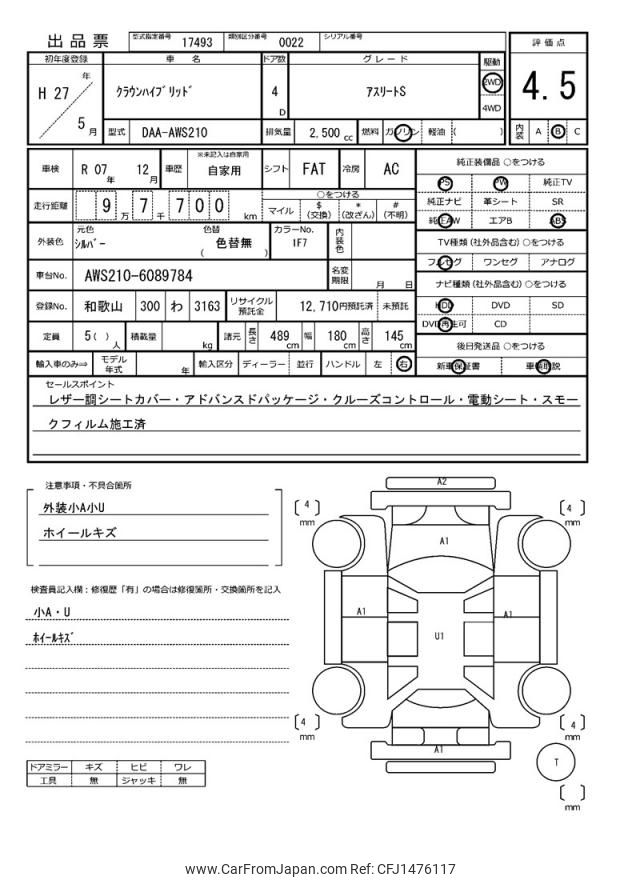 出品票 型式指定番号 17493 類別区分番号 0022 シリアル番号
初年度登録 車 名 ドア数 グレード 駆動 評価点
H 27 年 5 月
クラウンハイブリッド
4 D
アスリートS
2WD
4WD
4.5
型式 DAA-AWS210 排気量 2,500 cc 燃料 ガソリン 軽油 ( )
内装 A B C
車検 R 07 年 12 月 車歴 ※未記入は自家用 自家用 シフト FAT 冷房 AC
走行距離 9 万 7 千 7 0 0 km
○をつける
マイル $(交換) *(改ざん) #(不明)
外装色 元色 シルバー 色替 ( 色替無 ) カラーNo. 1F7 内装色
車台No. AWS210-6089784 名変期限 月 日
登録No. 和歌山 300 わ 3163 リサイクル預託金 12,710円預託済 未預託
定員 5( ) 人 積載量 kg 諸元 長さ 489 cm 幅 180 cm 高さ 145 cm
輸入車のみ⇒ モデル年式 年 輸入区分 ディーラー 並行 ハンドル 左 右
純正装備品 ○をつける
PS PW 純正TV
純正ナビ 革シート SR
純正AW エアB ABS
TV種類(社外品含む) ○をつける
フルセグ ワンセグ アナログ
ナビ種類(社外品含む) ○をつける
HDD DVD SD
DVD再生可 CD
後日発送品 ○をつける
新車保証書 車輌取説
セールスポイント
レザー調シートカバー・アドバンスドパッケージ・クルーズコントロール・電動シート・スモー
クフィルム施工済
注意事項・不具合箇所
外装小A小U
ホイールキズ
検査員記入欄:修復歴「有」の場合は修復箇所・交換箇所を記入
小A・U
ホイールキズ
ドアミラー キズ ヒビ ワレ
工具 無 ジャッキ 無
A2
[ 4 ] mm
[ 4 ] mm
A1
A1
A1
U1
[ 4 ] mm
[ 4 ] mm
A1
T
[ ] mm
www.CarFromJapan.com Ref: CFJ1476117